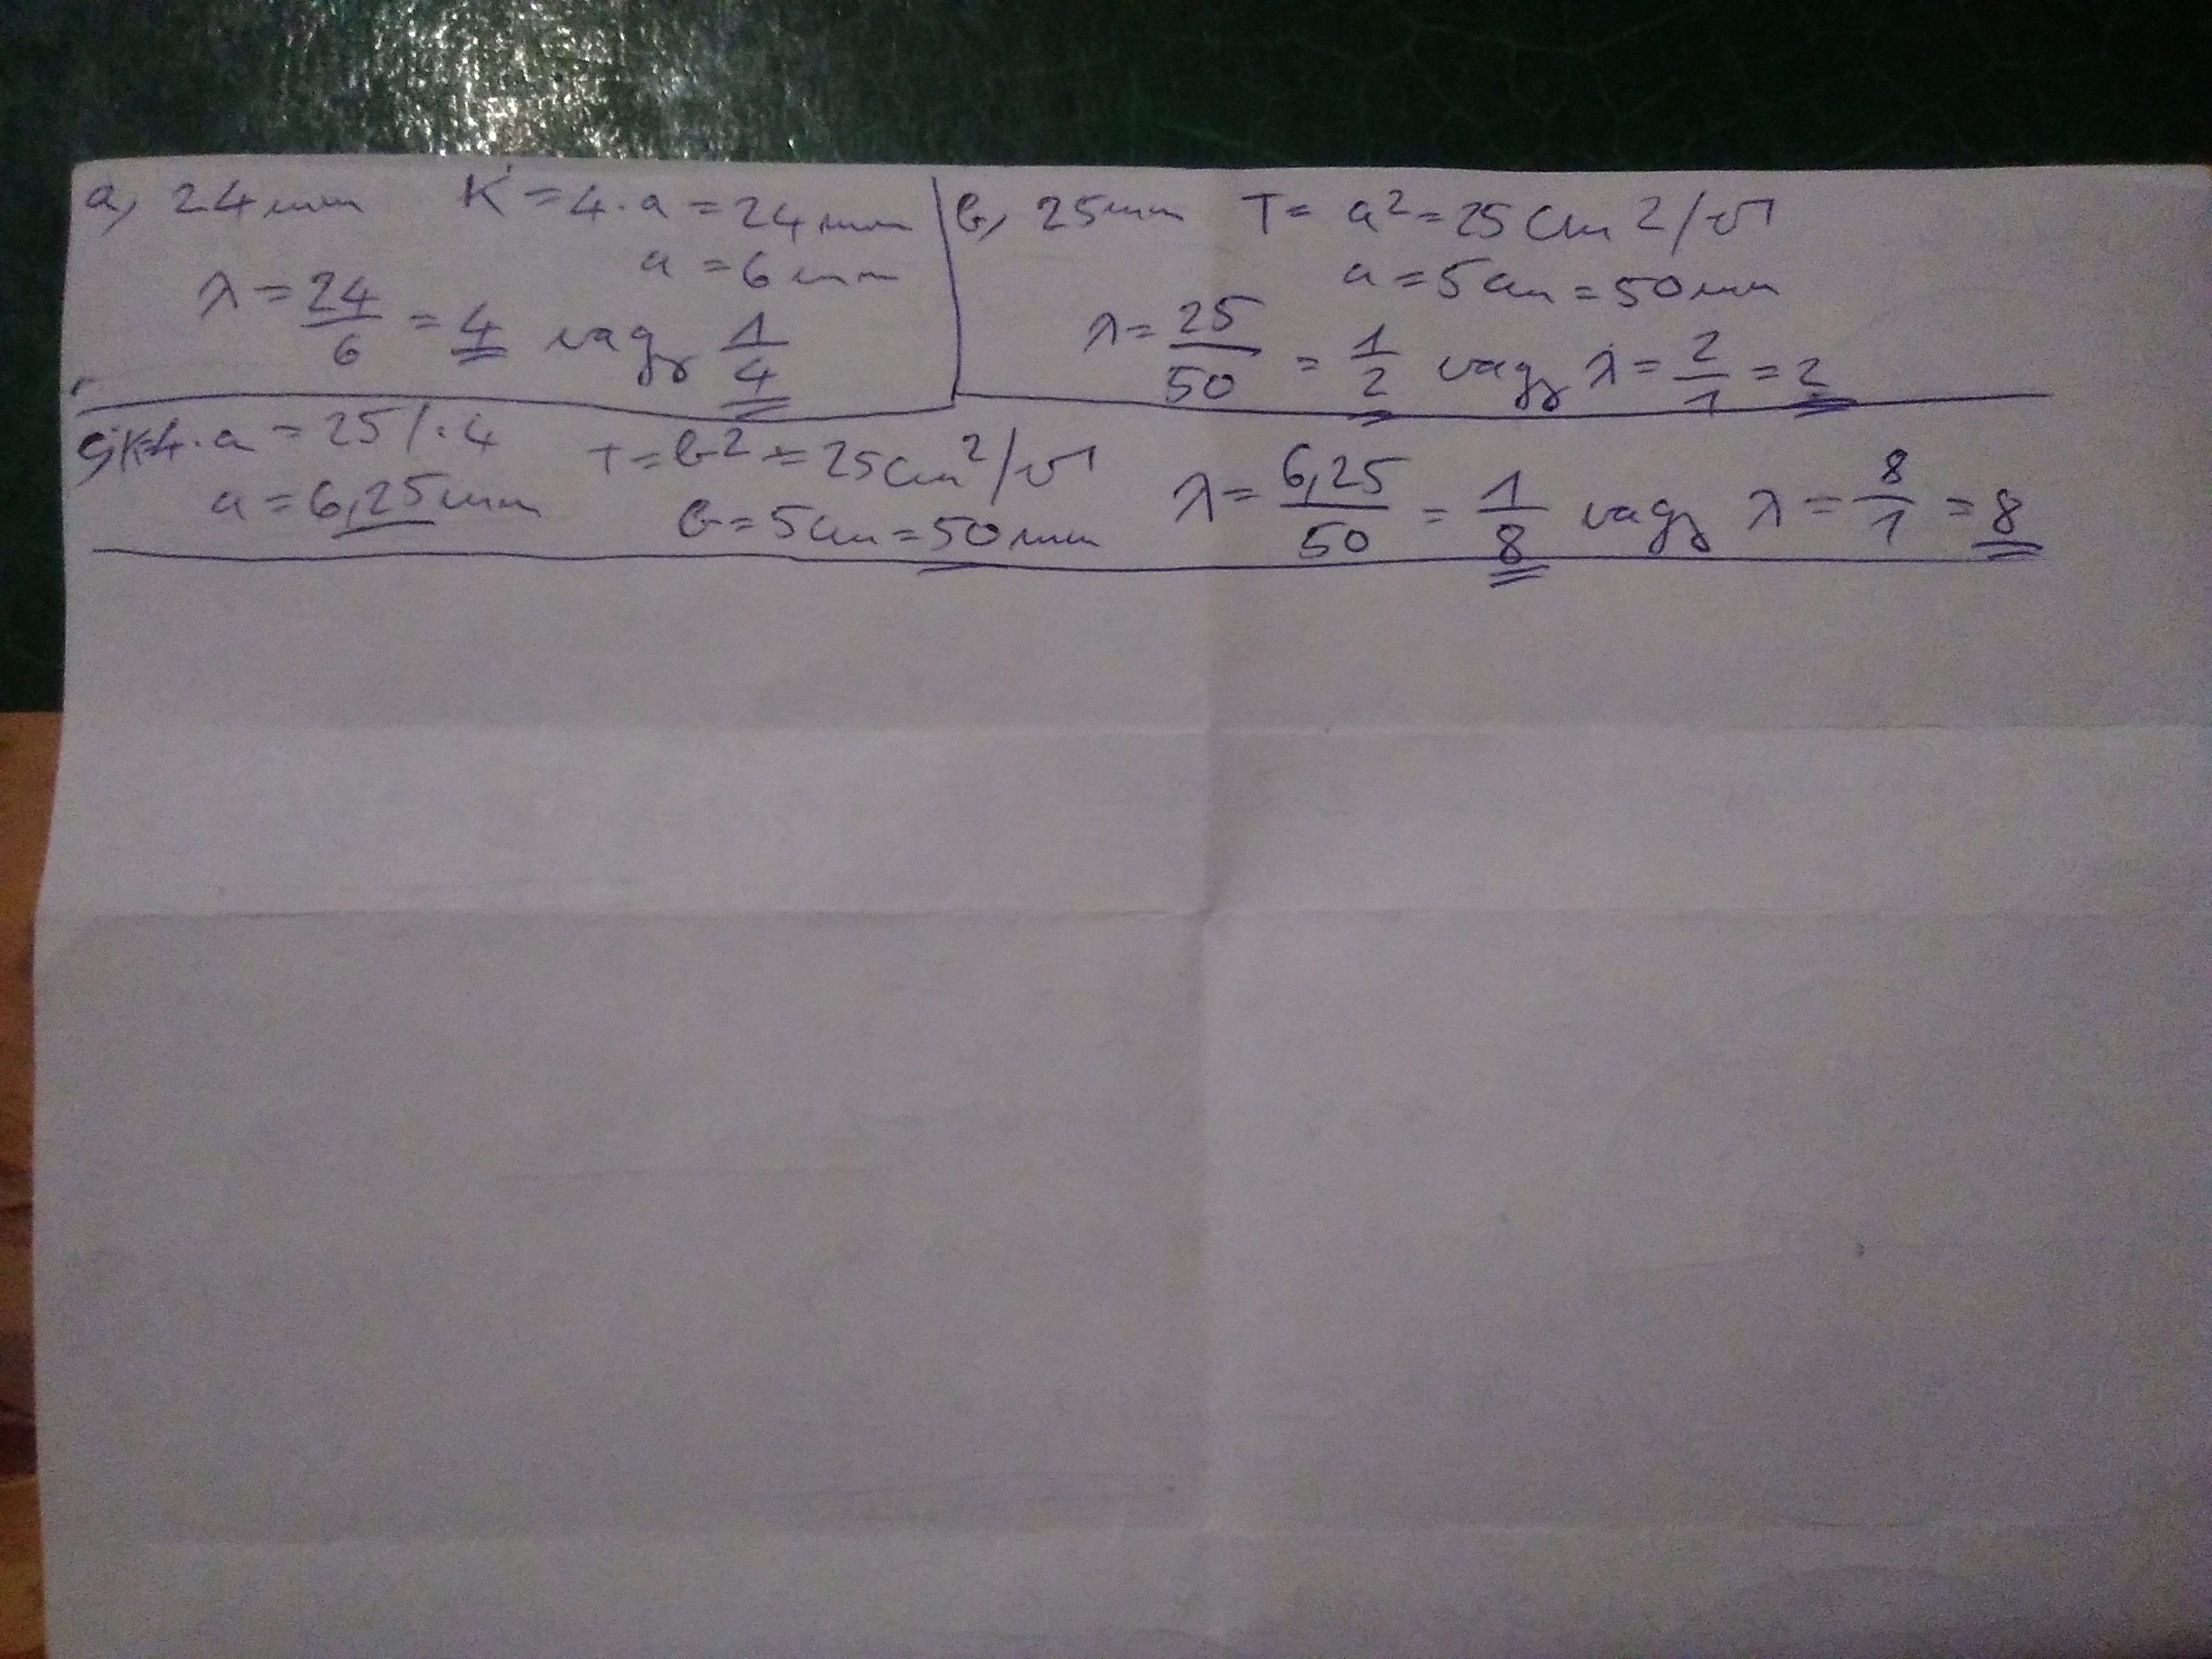 a, 24mm K = 4·a = 24mm
a = 6mm
λ = 24/6 = 4 vagy 1/4
b, 25mm T = a² = 25cm2/√
a = 5cm = 50mm
λ = 25/50 = 1/2 vagy λ = 2/1 = 2
c, K=4·a = 25/:4 T = b² = 25cm²/√
a = 6,25mm b = 5cm = 50mm
λ = 6,25/50 = 1/8 vagy λ = 8/1 = 8